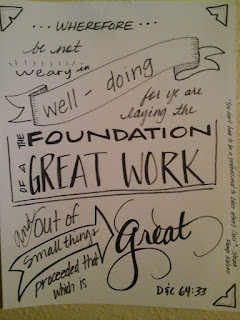 ... WHEREFORE ...
be not
weary in
well-doing
for ye are
laying the
THE FOUNDATION
OF A GREAT WORK
And out of
Small things
proceedeth that
which is
Great
D&C 64:33
"You don't have to be a professional to